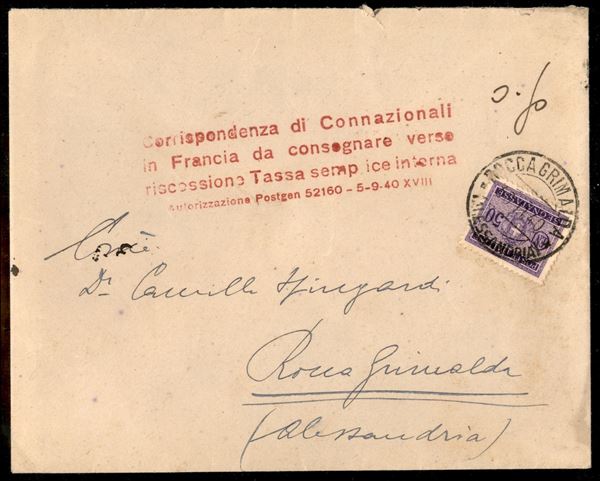 Corrispondenza di Connazionali
in Francia da consegnare verso
riscossione Tassa semplice interna
Autorizzazione Postgen 52160 - 5-9-40 XVIII
ROCCA GRIMALDA
ALESSANDRIA
50
SEGNATASSE
Dr Camillo
Rocca Grimalda
(Alessandria)